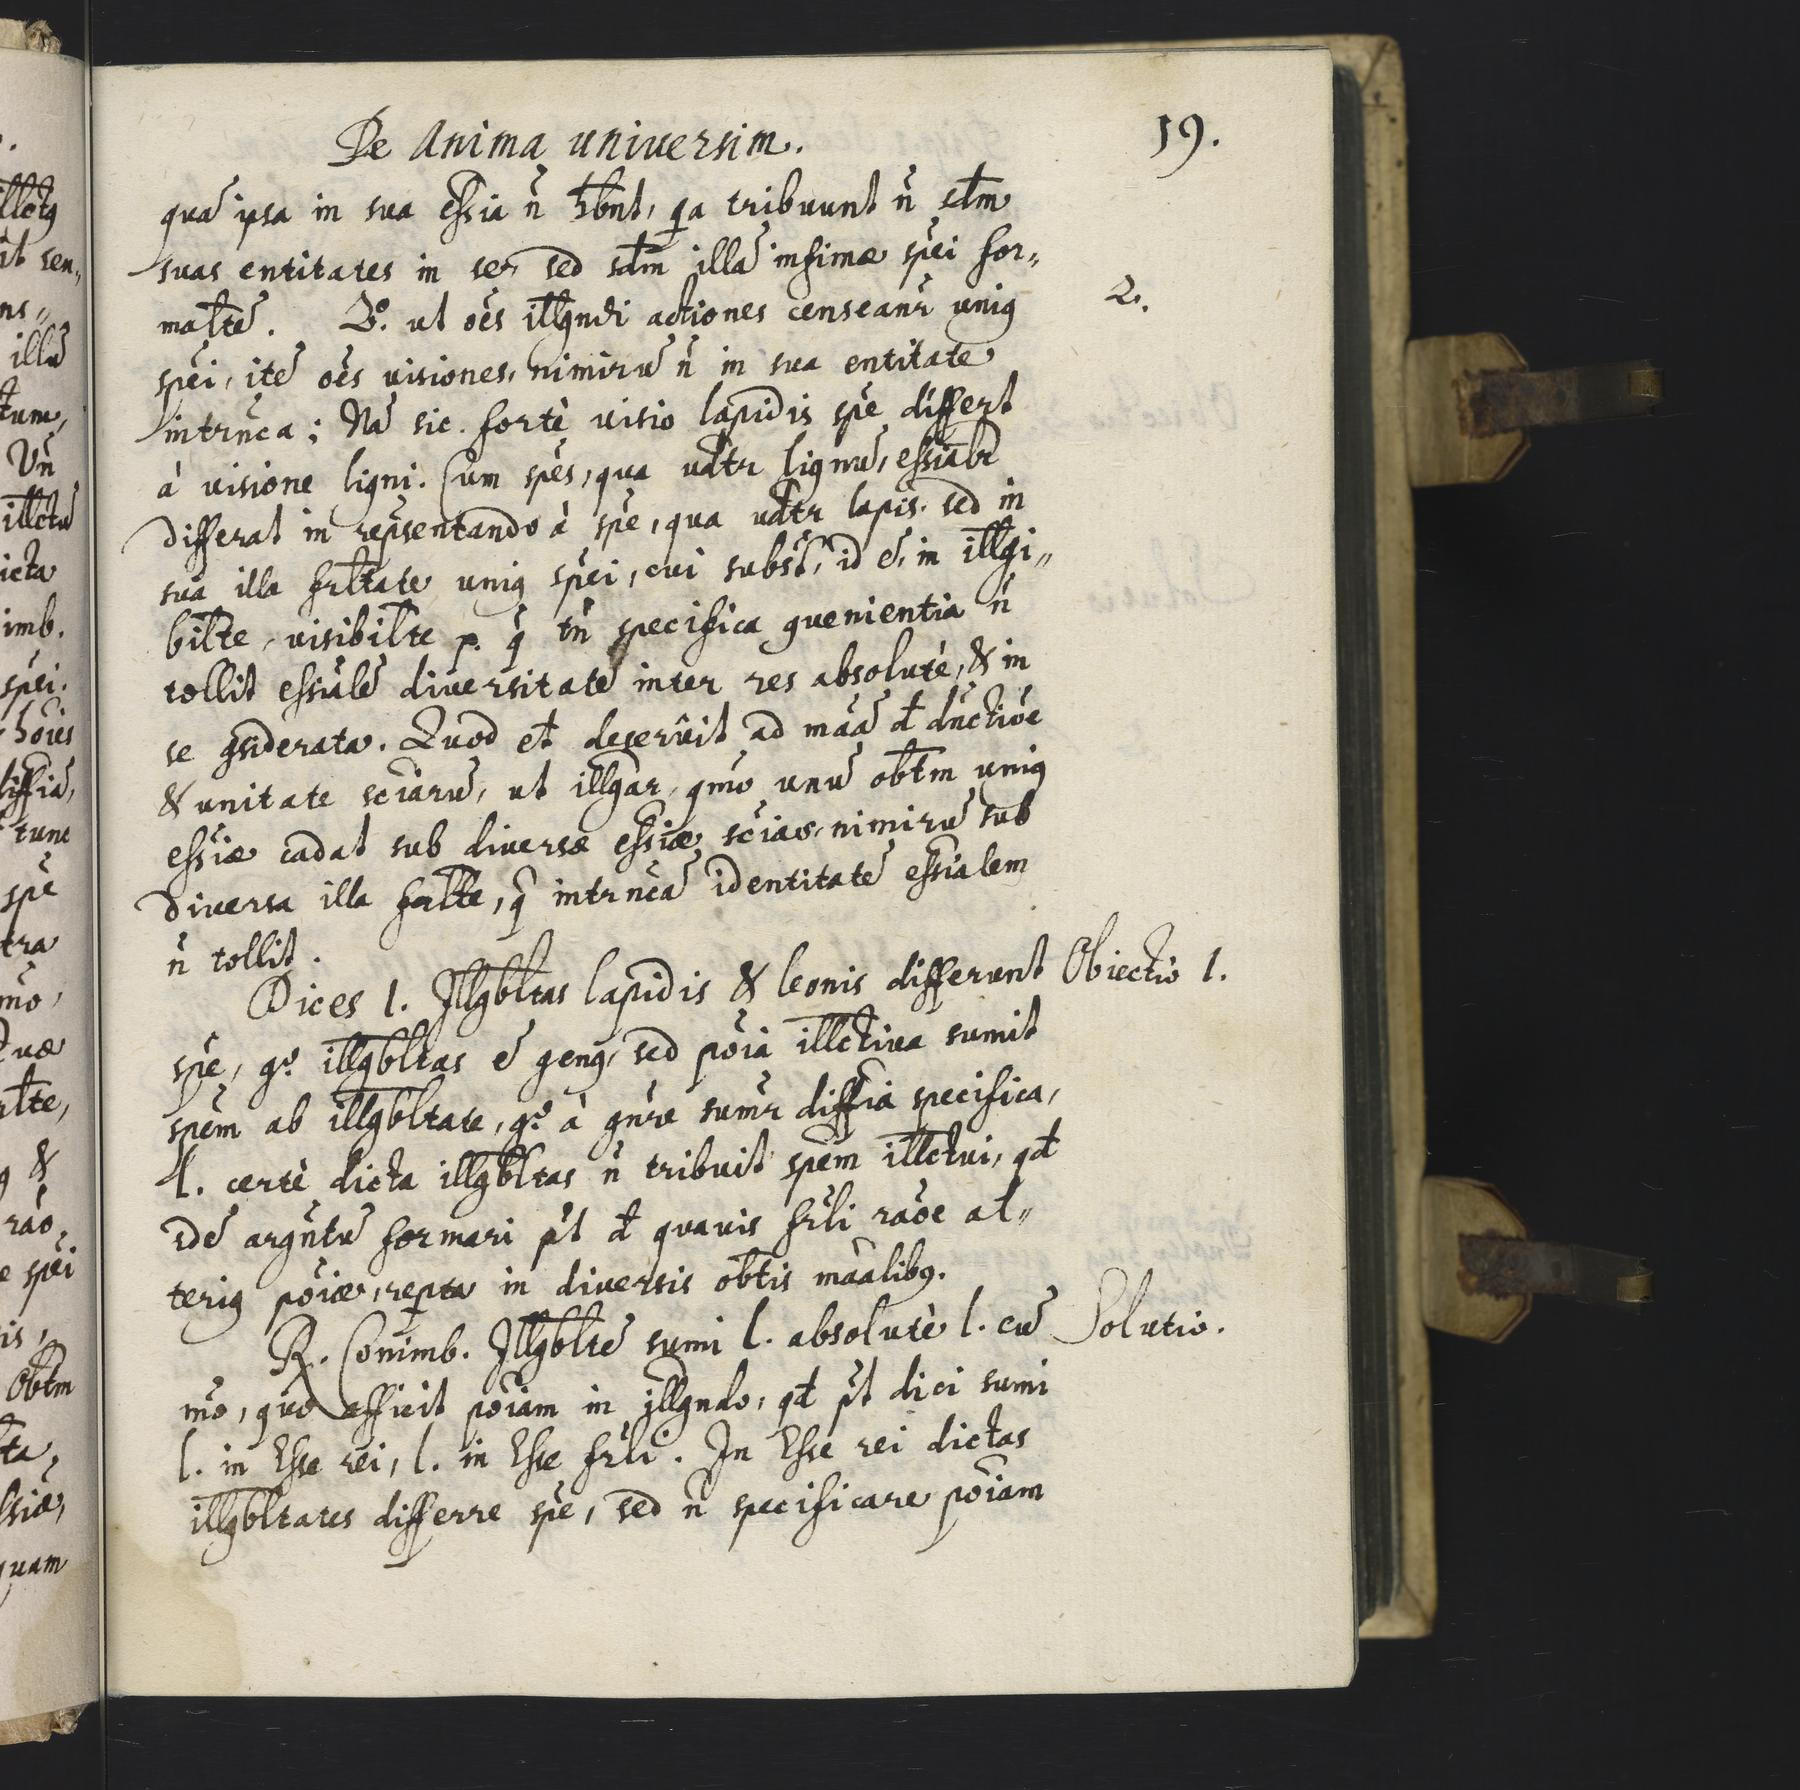 De Anima universim.
19.
quā ipsa in sua eſsia n̄ hbnt, qa tribuunt n̄ sdm
suas entitates in se, sed sdm illā infimæ spēi for„
maltē. 2º. ut oēs illgndi actiones censeanr uniq
2.
spēi, itē oēs visiones, nimirū n̄ in sua entitate
intrnca; Nā sic fortè visio lapidis spē differt
à visione ligni. Cum spēs, qua vdtr lignū, eſsiālr
differat in reprsentando à spē, qua vdtr lapis. sed in
sua illa frltate uniq spēi, cui subst, id ē, in illgi„
bilte, visibilte p. q̄ tn̄ specifica gvenientia n̄
tollit eſsiālē diversitatē inter res absolutè, & in
se gsiderata. Quod et deservit ad māā d dnctiōe
& unitate sciārū, ut illgar, qmō unū obtm uniq
eſsiæ cadat sub diversæ eſsiæ scias, nimirū sub
diversa illa frlte, q̄ intrncā identitatē eſsialem
n̄ tollit.
Dices 1. Illgbltas lapidis & leonis differunt
Obiectio 1.
spē, gº. illgbltas ē genq, sed pōia illctiva sumit
spēm ab illgbltate, gº. à gnre sumr diffia specifica,
l. certè dicta illgbltas n̄ tribuit spēm illctui, qd
idē argntū formari pt d quavis frli raōe al„
teriq pōiæ, repta in diversis obtis māalibq.
R. Conimb. Illgbltē sumi l. absolutè l. cū
Solutio.
mō, quo afficit pōiam in illgndo, qd pt dici sumi
l. in Eſse rei, l. in Eſse frli. In Eſse rei dictas
illgbltates differre spē, sed n̄ specificare pōiam